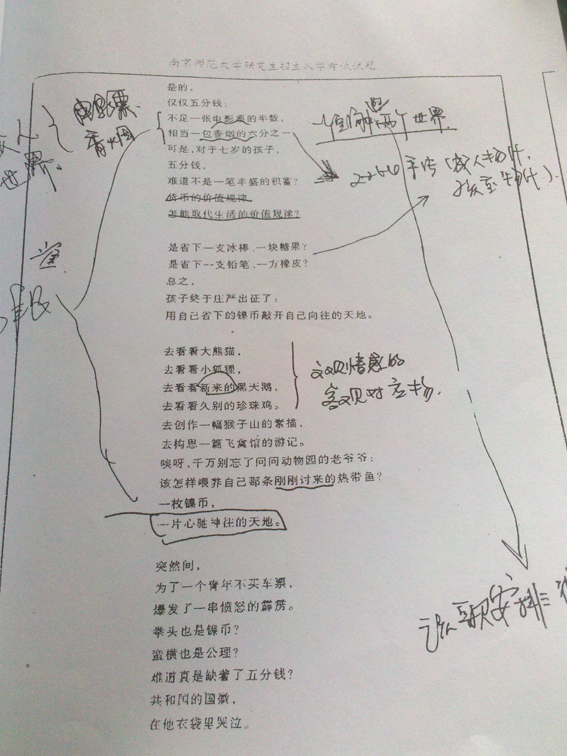 南京师范大学研究生招生入学考试试题
是的，
仅仅五分钱：
不足一张电影票的半数，
相当一包香烟的六分之一
可是，对于七岁的孩子，
五分钱，
难道不是一笔丰盛的积蓄？
货币的价值规律
怎能取代生活的价值规律？
是省下一支冰棒、一块糖果？
是省下一支铅笔、一方橡皮？
总之，
孩子终于庄严出征了：
用自己省下的镍币敲开自己向往的天地。
去看看大熊猫，
去看看小狐狸，
去看看新来的黑天鹅，
去看看久别的珍珠鸡。
去创作一幅猴子山的素描，
去构思一篇飞禽馆的游记。
唉呀，千万别忘了问问动物园的老爷爷：
该怎样喂养自己那条刚刚讨来的热带鱼？
一枚镍币，
一片心驰神往的天地。
突然间，
为了一个青年不买车票，
爆发了一串愤怒的霹雳。
拳头也是镍币？
蛮横也是公理？
难道真是缺着了五分钱？
共和国的国徽，
在他衣袋里哭泣。
电影票
香烟
人
世界
两个世界
手法
主观情感的
客观对应物
安排